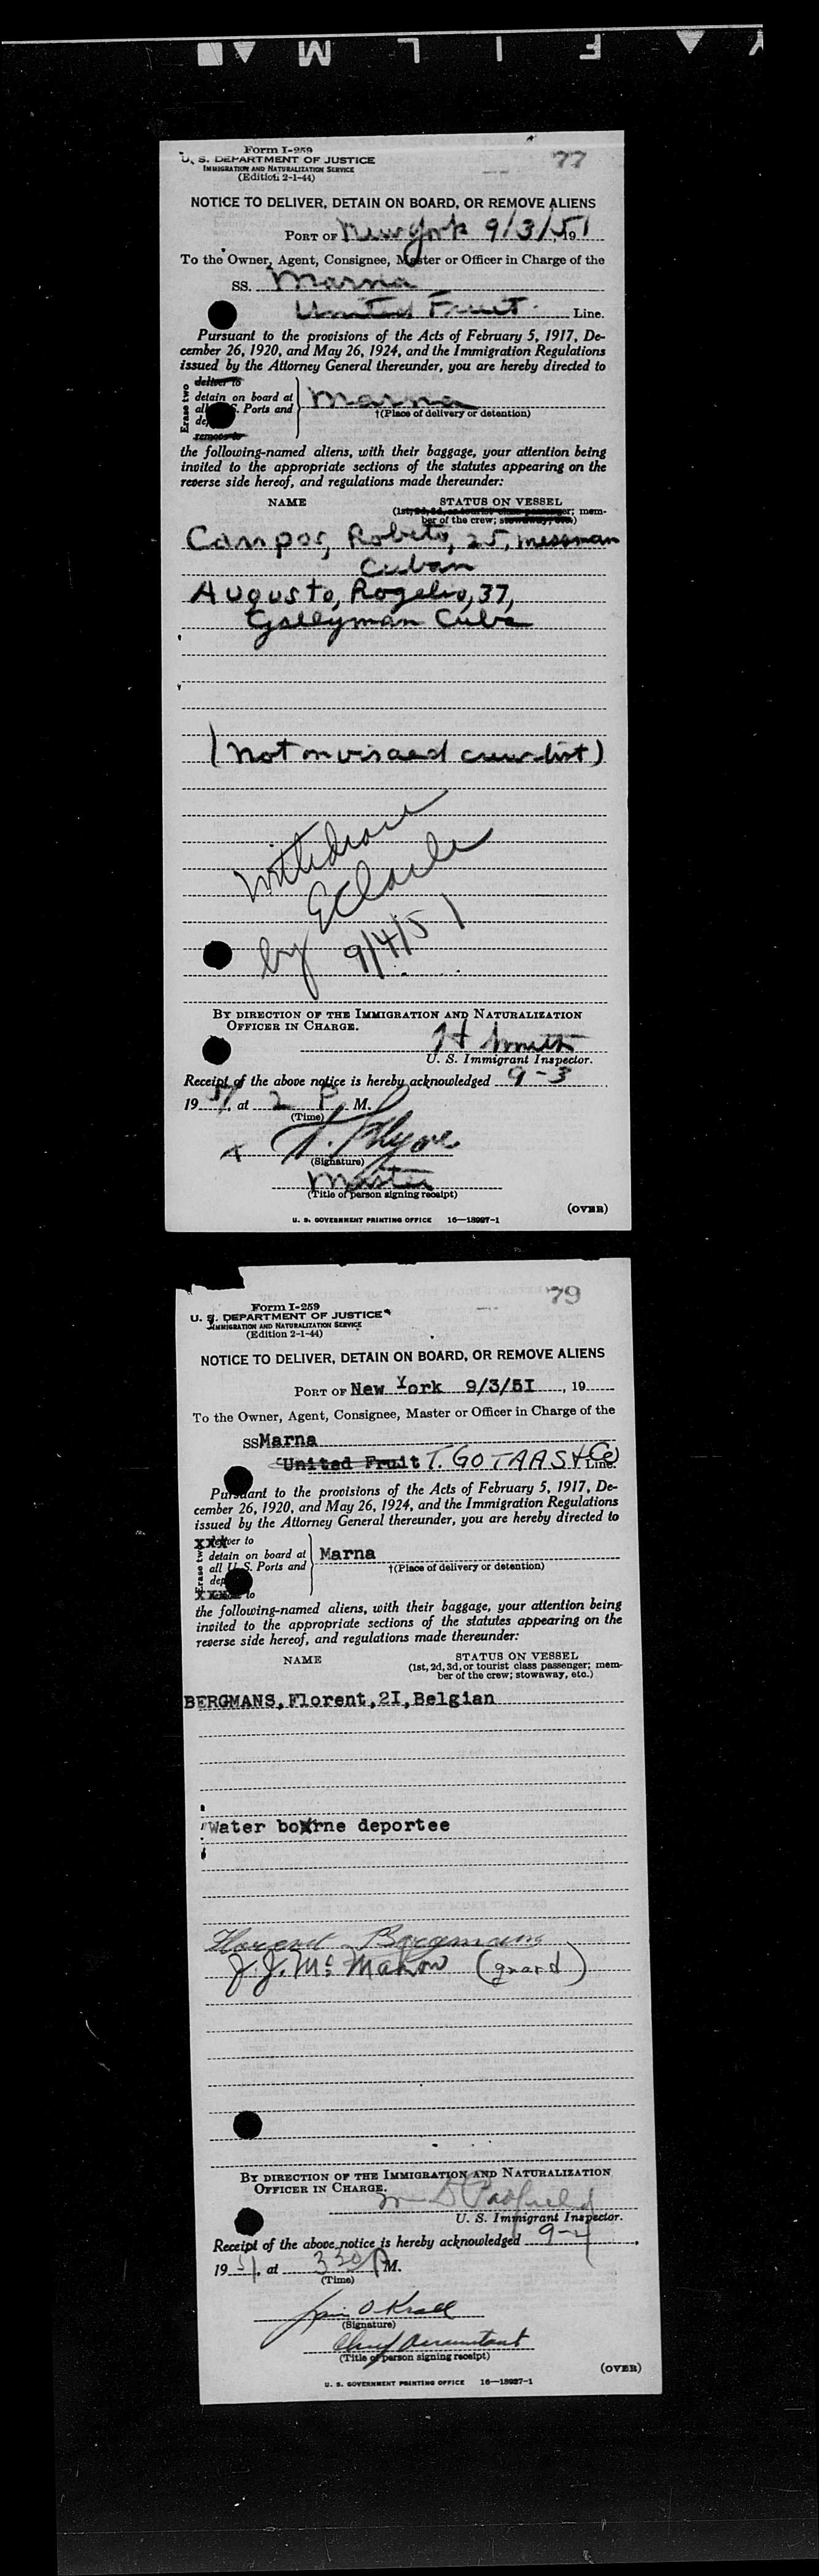 F I L M
Form I-259
77
U. S. DEPARTMENT OF JUSTICE
IMMIGRATION AND NATURALIZATION SERVICE
(Edition 2-1-44)
NOTICE TO DELIVER, DETAIN ON BOARD, OR REMOVE ALIENS
PORT OF New York 9/3/51, 19
To the Owner, Agent, Consignee, Master or Officer in Charge of the
SS. Marna
United Fruit Line.
Pursuant to the provisions of the Acts of February 5, 1917, De-
cember 26, 1920, and May 26, 1924, and the Immigration Regulations
issued by the Attorney General thereunder, you are hereby directed to
Erase two
deliver to
detain on board at
all S. Ports and
de
remove to
Marna
†(Place of delivery or detention)
the following-named aliens, with their baggage, your attention being
invited to the appropriate sections of the statutes appearing on the
reverse side hereof, and regulations made thereunder:
NAME STATUS ON VESSEL
(1st, 2d, 3d, or tourist class passenger; mem-
ber of the crew; stowaway, etc.)
Campos, Robeto, 25, messman
Cuban
Augusto, Rogelio, 37,
Galleyman Cuba
(not on visaed crew list)
Withdrawn
by EClarke
9/4/51
BY DIRECTION OF THE IMMIGRATION AND NATURALIZATION
OFFICER IN CHARGE.
H Smith
U. S. Immigrant Inspector.
Receipt of the above notice is hereby acknowledged 9-3
1951, at 2 P. M.
(Time)
x T.
(Signature)
Master
(Title of person signing receipt)
(OVER)
U. S. GOVERNMENT PRINTING OFFICE 16—18927-1
Form I-259
79
U. S. DEPARTMENT OF JUSTICE
IMMIGRATION AND NATURALIZATION SERVICE
(Edition 2-1-44)
NOTICE TO DELIVER, DETAIN ON BOARD, OR REMOVE ALIENS
PORT OF New York 9/3/5I, 19
To the Owner, Agent, Consignee, Master or Officer in Charge of the
SS Marna
United Fruit T. GOTAAS & Co Line.
Pursuant to the provisions of the Acts of February 5, 1917, De-
cember 26, 1920, and May 26, 1924, and the Immigration Regulations
issued by the Attorney General thereunder, you are hereby directed to
Erase two
xxx deliver to
detain on board at
all U. S. Ports and
dep
xxx to
Marna
†(Place of delivery or detention)
the following-named aliens, with their baggage, your attention being
invited to the appropriate sections of the statutes appearing on the
reverse side hereof, and regulations made thereunder:
NAME STATUS ON VESSEL
(1st, 2d, 3d, or tourist class passenger; mem-
ber of the crew; stowaway, etc.)
BERGMANS, Florent, 2I, Belgian
Water boxrne deportee
Florent Bergmans
J. J. McMahon (guard)
BY DIRECTION OF THE IMMIGRATION AND NATURALIZATION
OFFICER IN CHARGE.
M D Padfield
U. S. Immigrant Inspector.
Receipt of the above notice is hereby acknowledged 9-4
1951, at 330 P M.
(Time)
O Krall
(Signature)
Chief Accountant
(Title of person signing receipt)
(OVER)
U. S. GOVERNMENT PRINTING OFFICE 16—18927-1